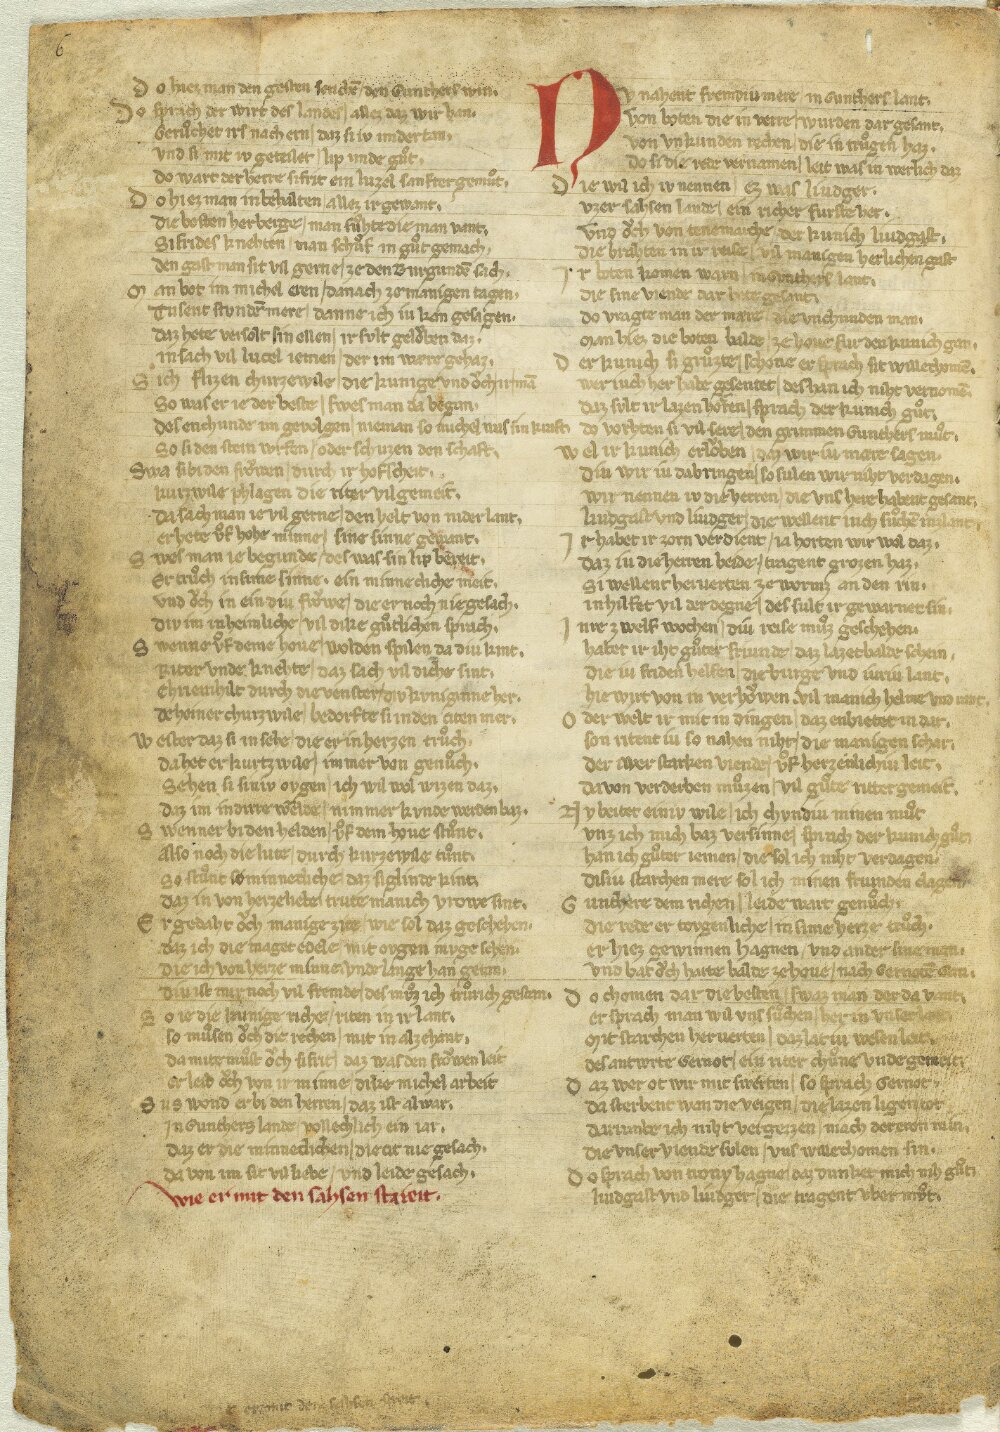 6
Do hiez man den gesten schenchē / den Gunthers win.
Do sprach der wirt des landes / allez daz wir han.
Geruͦchet irs nach ern / daz si iv undertan.
vnd si mit iv geteilet / lip unde guͦt.
do wart der herre sifrit ein luzel sanfter gemuͦt.
Do hiez man in behalten / allez ir gewant.
die besten herberge / man suͦhte die man vant.
Sifrides knehten / man schuͦf in guͦt gemach.
den gast man sit vil gerne / ze den Burgundē sach.
Man bot im michel eren / danach ze manigen tagen.
Tusent stvndē mere / danne ich iu kan gesagen.
daz hete versolt sin ellen / ir svlt geloͮben daz.
in sach vil lucel iemen / der im were gehaz.
Sich flizen churzewile / die kunige vnd oͮch ir man
So was er ie der beste / swes man da began.
des enchunde im gevolgen / nieman so michel was sin kraft
So si den stein wrfen / oder schuzen den schaft.
Swa si bi den froͮwen / durch ir hofscheit.
kurzwile phlagen die riter vil gemeit.
da sach man ie vil gerne / den helt von niderlant.
er hete vf hohe minne / sine sinne gewant.
Swes man ie begunde / des was sin lip bereit.
Er truͦch in sime sinne / ein minnecliche meit.
vnd oͮch in ein div froͮwe / die er noch nie gesach.
div im in heimliche / vil dike guͦtlichen sprach.
Swenne vf deme houe / wolden spilen da diu kint.
Riter vnde knehte / daz sach vil diche sint.
Chriemhilt durch die venster / div kvniginne her.
deheiner churzwile / bedorfte si in den citen mer.
Wester daz si in sehe / die er in herzen truͦch.
da het er kurtzwile / immer von genuͦch.
Sehen si siniv oygen / ich wil wol wizen daz.
daz im in dirre welde / nimmer kvnde werden baz.
Swenner bi den helden / vf dem houe stuͦnt.
Also noch die lute / durch kurzewile tuͦnt.
So stuͦnt so minnecliche / daz siglinde kint.
daz in von herzeliebe / trute manich vrowe sint.
Er gedaht oͮch manige zite / wie sol daz geschehen.
daz ich die maget edele / mit oygen mvge sehen.
die ich von herze minne / vnde lange han getan.
div ist mir noch vil fremde / des muͦz ich truͦrich gestan.
So ie die kunige riche / riten in ir lant.
so muͦsen oͮch die rechen / mit in alzehant.
da mite muͦst oͮch sifrit / daz was den froͮwen leit
er leid oͮch von ir minne / dike michel arbeit
Sus wond er bi den herren / daz ist alwar.
in Gunthers lande / vollechlich ein iar.
daz er die minneclichen / die cit nie gesach.
da von im sit vil liebe / vnd leide gesach.
wie er mit den sahsen streit.
NV nahent fremdiu mere / in Gunthers lant.
von boten die in verre / wurden dar gesant.
von vnkunden rechen / die in truͦgen haz.
do si die rede vernamen / leit was in werlich daz
Die wil ich iv nennen / Ez was liudger.
vzer sahsen lande / ein richer furste her.
vnd oͮch von tenemarche / der kunich liudgast.
die brahten in ir reise / vil manigen herlichen gast
Ir boten komen warn / in Gunthers lant.
die sine viende dar hete gesant.
do vragte man der mære / die vnchunden man.
man hiez die boten balde / ze houe fur den kunich gan.
Der kunich si gruͦzte / schone er sprach sit willechomē.
wer iuch her habe gesentet / des han ich niht vernomē.
daz svlt ir lazen hoͤren / sprach der kunich guͦt.
do vorhten si vil sere / den grimmen Gunthers muͦt.
Wel ir kunich erloͮben / daz wir iu mere sagen.
Diu wir iu da bringen / so sulen wir niht verdagen.
wir nennen iv die herren / die vns her habent gesant.
liudgast vnd liudger / die wellent iuch suͦchē in lant.
Ir habet ir zorn verdient / ia horten wir wol daz.
daz iu die herren beide / tragent grozen haz.
Si wellent herverten ze wormz an den rin.
in hilfet vil der degne / des sult ir gewarnet sin.
Inre zwelf wochen / diu reise muͦz geschehen.
habet ir iht guͦter friunde / daz lazet balde sehein.
die iu friden helfen / die burge vnd iuriu lant.
hie wirt von in verhoͮwen / vil manich helme vnd rant.
Oder welt ir mit in dingen / daz enbietet in dar.
son ritent iu so nahen niht / die manigen schar.
der iwer starken viende / vf herzenlichiu leit.
da von verderben muͦzen / vil guͦte ritter gemeit.
Nv beitet einiv wile / ich chvndiu minen muͦt
vnz ich mich baz versinne / sprach der kunich guͦt
han ich guͦter iemen / die sol ich niht verdagen.
disiu starchen mere sol ich / minen friunden clagen.
Gunthere dem richen / leide wart genuͦch.
die rede er toygenliche / in sime herze truͦch.
er hiez gewinnen hagnen / vnd ander sine man.
vnd bat oͮch harte balde ze houe / nach Gernotē gan.
Do chomen dar die besten / swaz man der da vant.
er sprach man wil vns suͦchen / her in vnser lant.
mit starchen herverten / daz lat iu wesen leit.
des antwrte Gernot / ein riter chuͦne vnde gemeit.
Daz wer ot wir mit swerten / so sprach Gernot.
da sterbent wan die veigen / die lazen ligen tot
darumbe ich niht vergezzen / mach der eren min.
die vnser viende svlen / vns willechomen sin.
Do sprach von trony hagne / daz dunket mich niht guͦt
liudgast vnd liudger / die tragent vber muͦt.